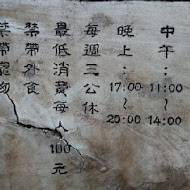 中午：11:00～14:00
晚上：17:00～20:00
每週三公休
最低消費每人100元
禁帶外食
禁帶寵物